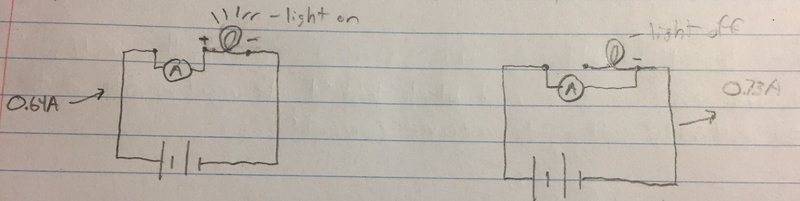 - light on
+ -
A
0.64A
- light off
-
A
0.73A